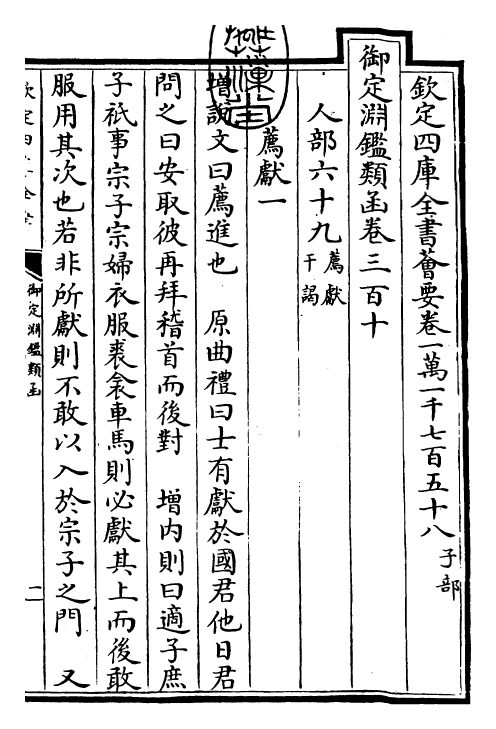 欽定四庫全書薈要卷一萬一千七百五十八 子部
御定淵鑑類函卷三百十
人部六十九 薦獻 干謁
薦獻一
增說文曰薦進也 原曲禮曰士有獻於國君他日君
問之曰安取彼再拜稽首而後對 增内則曰適子庶
子祇事宗子宗婦衣服裘衾車馬則必獻其上而後敢
服用其次也若非所獻則不敢以入於宗子之門 又
御定淵鑑類函